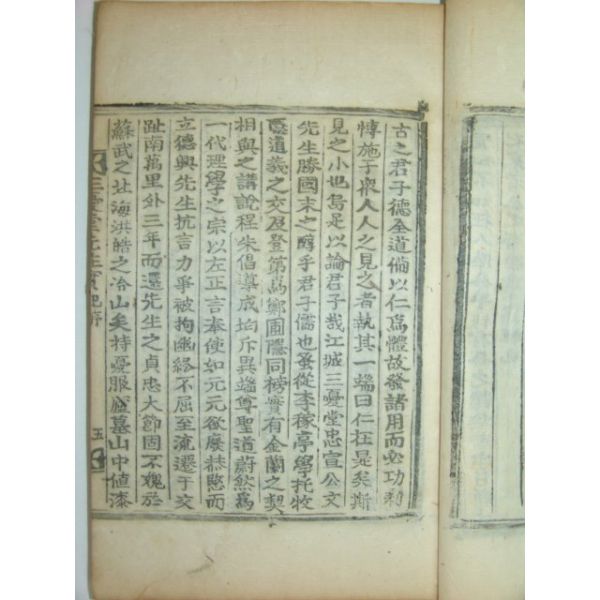 古之君子德全道備以仁爲體故發諸用而必功利
博施于衆人人之見之者執其一端曰仁在是矣斯
見之小也烏是以論君子哉江城三憂堂忠宣公文
先生勝國末之醇乎君子儒也蚤從李稼亭學托牧
隱道義之交及登第爲鄭圃隱同榜實有金蘭之契
相與之講說程朱倡導成均斥異端尊聖道蔚然爲
一代理學之宗以左正言奉使如元元欲廢恭愍而
立德興先生抗言力爭被拘幽終不屈至流遷于交
趾南萬里外三年而還先生之貞忠大節固不愧於
蘇武之北海洪皓之冷山矣特憂服廬墓山中値漆
三憂堂先生實記序
五